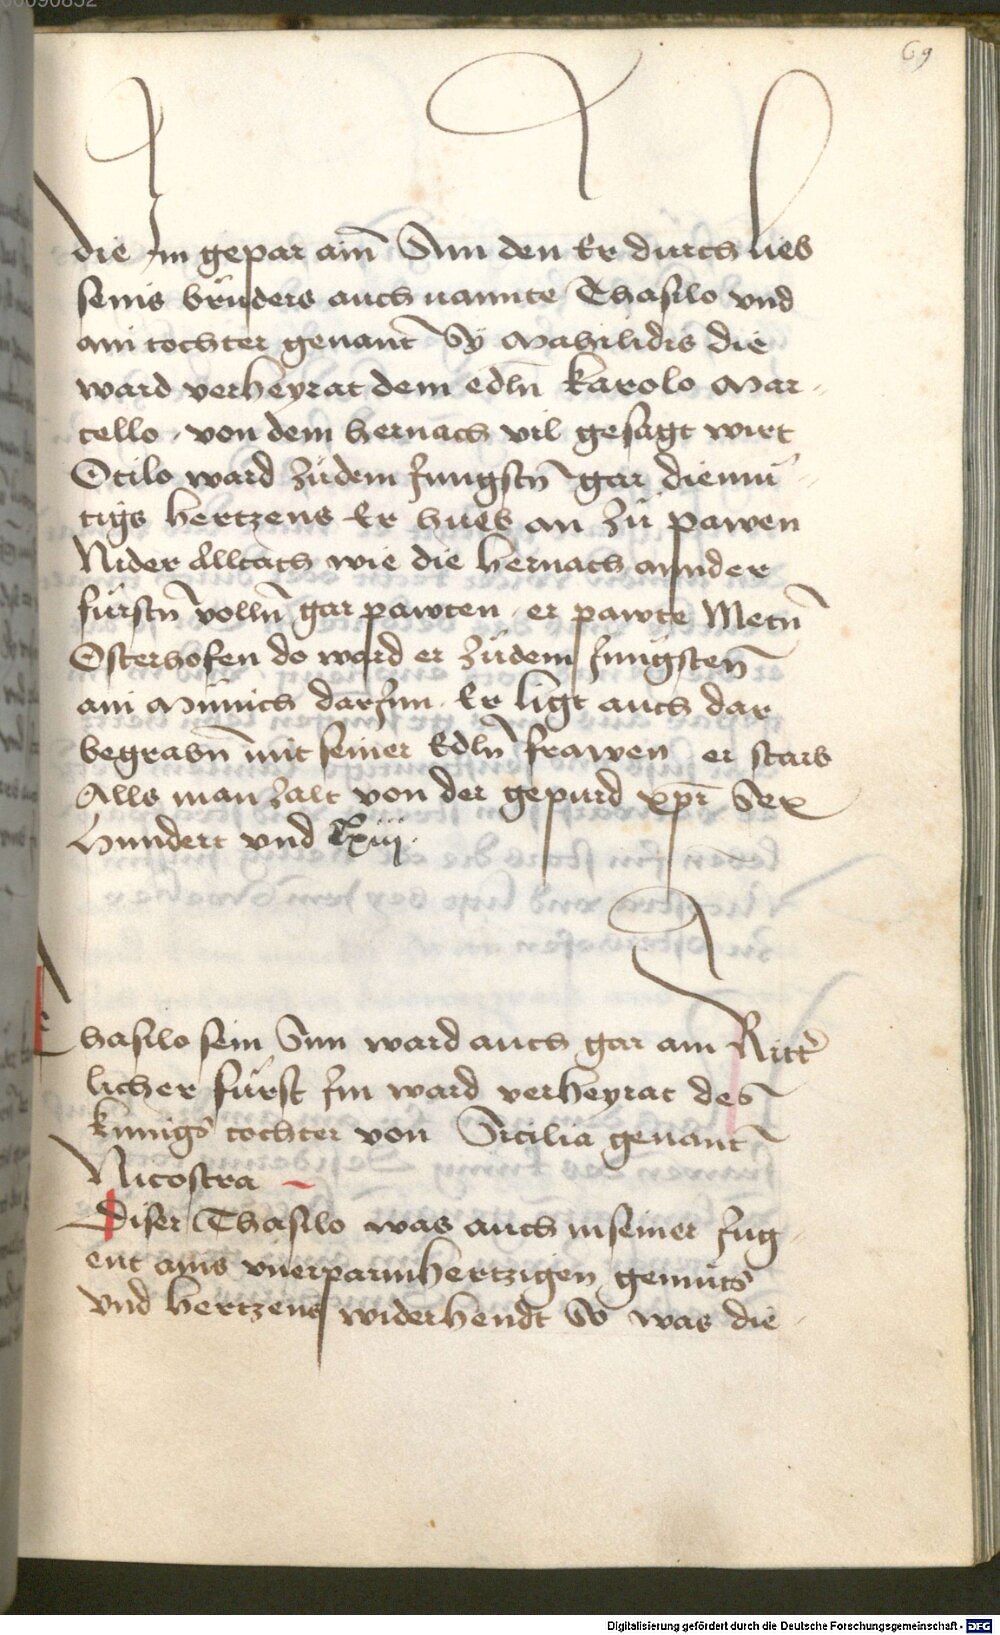 00090852
69
die Im gepar ain̄ Sun den Er durch lieb
seins brůders auch nannte Thasilo vnd
ain tochter genant̄ Sÿ Mahilidis die
ward verheyrat dem edln̄ karolo Mar-
cello . von dem hernach vil gesagt wirt
Otilo ward zůdem Jungstn̄ gar diemů-
tigs hertzens Er hueb an zů pawen
Nider Alltach wie die hernach annder
fürstn̄ volln̄ gar pawten . er pawte Metn̄
Osterhofen do ward er zůdem Jungsten̄
ain Münich darJnn . Er ligt auch dar
begrabn̄ mit seiner Edln̄ frawen er starb
Alls man zalt von der gepurd xp̄i Sex
Hundert vnd lxiii .
Thasilo sein Sun ward auch gar ain Ritt̾
licher fürst Im ward verheyrat des
kunigs tochter von Sicilia genant̄
Nicostra
Diser Thasilo was auch in seiner Jug-
ent ains vnerparmhertzigen gemůts
vnd hertzens widerhendt So was die
Digitalisierung gefördert durch die Deutsche Forschungsgemeinschaft - DFG